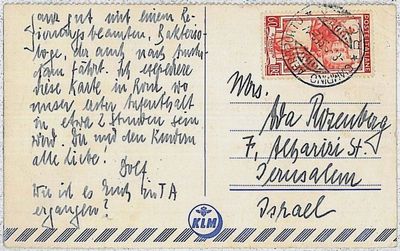 ganz gut mit einem Re-
gierungsbeamten, Bakterio-
loge, der auch nach
fährt. Ich
diese Karte in Rom, wo
unser erster Aufenthalt
in etwa 2 Stunden sein
wird. Dir und den Kindern
alle Liebe.
Dolf.
Wie ist es Euch in TA
ergangen?
KLM
POSTE ITALIANE
Mrs.
Ada Rozenberg
7, Alharizi St.
Jerusalem
Israel